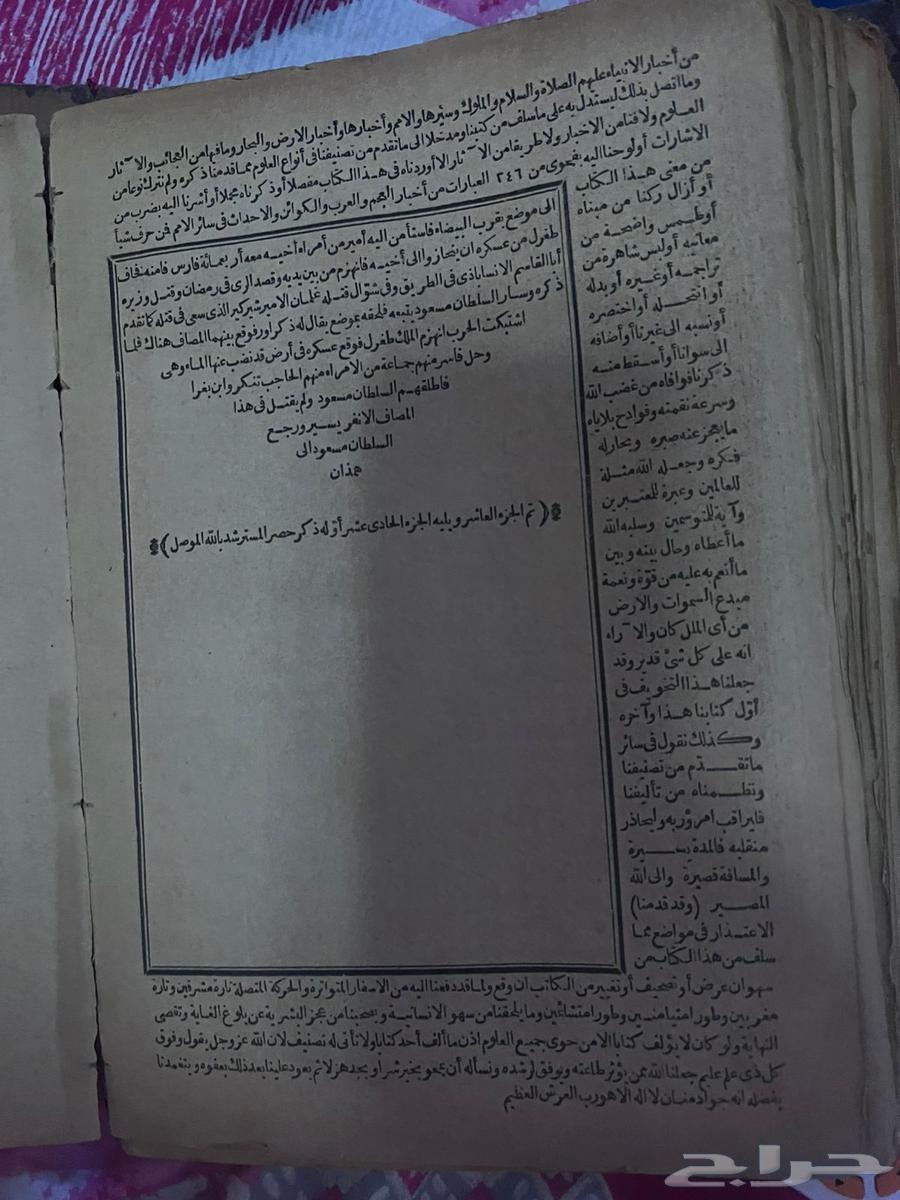 من أخبار الانبياء عليهم الصلاة والسلام والملوك وسيرها والامم وأخبارها وأخبار الارض والبحار وما فيها من العجائب والا^ثار
وما اتصل بذلك ليستدل به على ما سلف من كتبنا ومدخلا الى ما تقدم من تصنيفنا فى أنواع العلوم مما قدمنا ذكره ولم نترك نوعا من
العلوم ولا فنا من الاخبار ولا طريقا من الا^ثار الا أوردناه فى هذا الكتاب مفصلا أو ذكرناه مجملا أو أشرنا اليه بضرب من
الاشارات أو لوحنا اليه بفحوى من ٢٤٦ العبارات من أخبار العجم والعرب والكوائن والاحداث فى سائر الامم فمن حرف شيأ
من معنى هذا الكتاب
أو أزال ركنا من مبناه
أو طمس واضحة من
معانيه أو لبس شاهرة من
تراجمه أو غيره أو بدله
أو انتحله أو اختصره
أو نسبه الى غيرنا أو أضافه
الى سوانا أو أسقط منه
ذكرنا فوافاه من غضب الله
وسرعة نقمته وفوادح بلاياه
ما يعجز عنه صبره ويحار له
فكره وجعله الله مثلة
للعالمين وعبرة للمعتبرين
وآية للمتوسمين وسلبه الله
ما أعطاه وحال بينه وبين
ما أنعم به عليه من قوة ونعمة
مبدع السموات والارض
من أى الملل كان والا^راء
انه على كل شئ قدير وقد
جعلنا هذا التخويف فى
أول كتابنا هذا وآخره
وكذلك نقول فى سائر
ما تقدم من تصنيفنا
ونظمناه من تأليفنا
فليراقب امرؤ ربه وليحاذر
منقلبه فالمدة يسيرة
والمسافة قصيرة والى الله
المصير (وقد قدمنا)
الاعتذار فى مواضع مما
سلف من هذا الكتاب من
سهو ان عرض أو تصحيف أو تغيير من الكاتب ان وقع ولما قد دفعنا اليه من الاسفار المتواترة والحركة المتصلة تارة مشرقين وتارة
مغربين وطورا متيامنين وطورا متشائمين وما يلحقنا من سهو الانسانية ويصحبنا من عجز البشرية عن بلوغ الغاية وتقصى
النهاية ولو كان لا يؤلف كتابا الا من حوى جميع العلوم اذن ما ألف أحد كتابا ولا تأتى له تصنيف لان الله عز وجل يقول وفوق
كل ذى علم عليم جعلنا الله ممن يؤثر طاعته ويوفق لرشده ونسأله أن يمحو بخير شرا وبجد هزلا ثم يعود علينا بعد ذلك بعفوه ويتغمدنا
بفضله انه جواد منان لا اله الا هو رب العرش العظيم
الى موضع بقرب البيضاء فاستأمن اليه أمير من أمراء أخيه معه أربعمائة فارس فامنه فخاف
طغرل من عسكره ان ينحاز والى أخيه فانهزم من بين يديه وقصد الرى فى رمضان وقتل وزيره
أبا القاسم الانساباذى فى الطريق وفى شوال قتله غلمان الامير شيركير الذى سعى فى قتله كما تقدم
ذكره وسار السلطان مسعود يتبعه فلحقه بموضع يقال له ذكراور فوقع بينهما المصاف هناك فلما
اشتبكت الحرب انهزم الملك طغرل فوقع عسكره فى أرض قد نضب عنها الماء وهى
وحل فاسر منهم جماعة من الامراء منهم الحاجب تنكر وابن بغرا
فاطلقهم السلطان مسعود ولم يقتل فى هذا
المصاف الا نفر يسير ورجع
السلطان مسعود الى
همذان
*(تم الجزء العاشر ويليه الجزء الحادى عشر أوله ذكر حصر المسترشد بالله الموصل)*
حراج